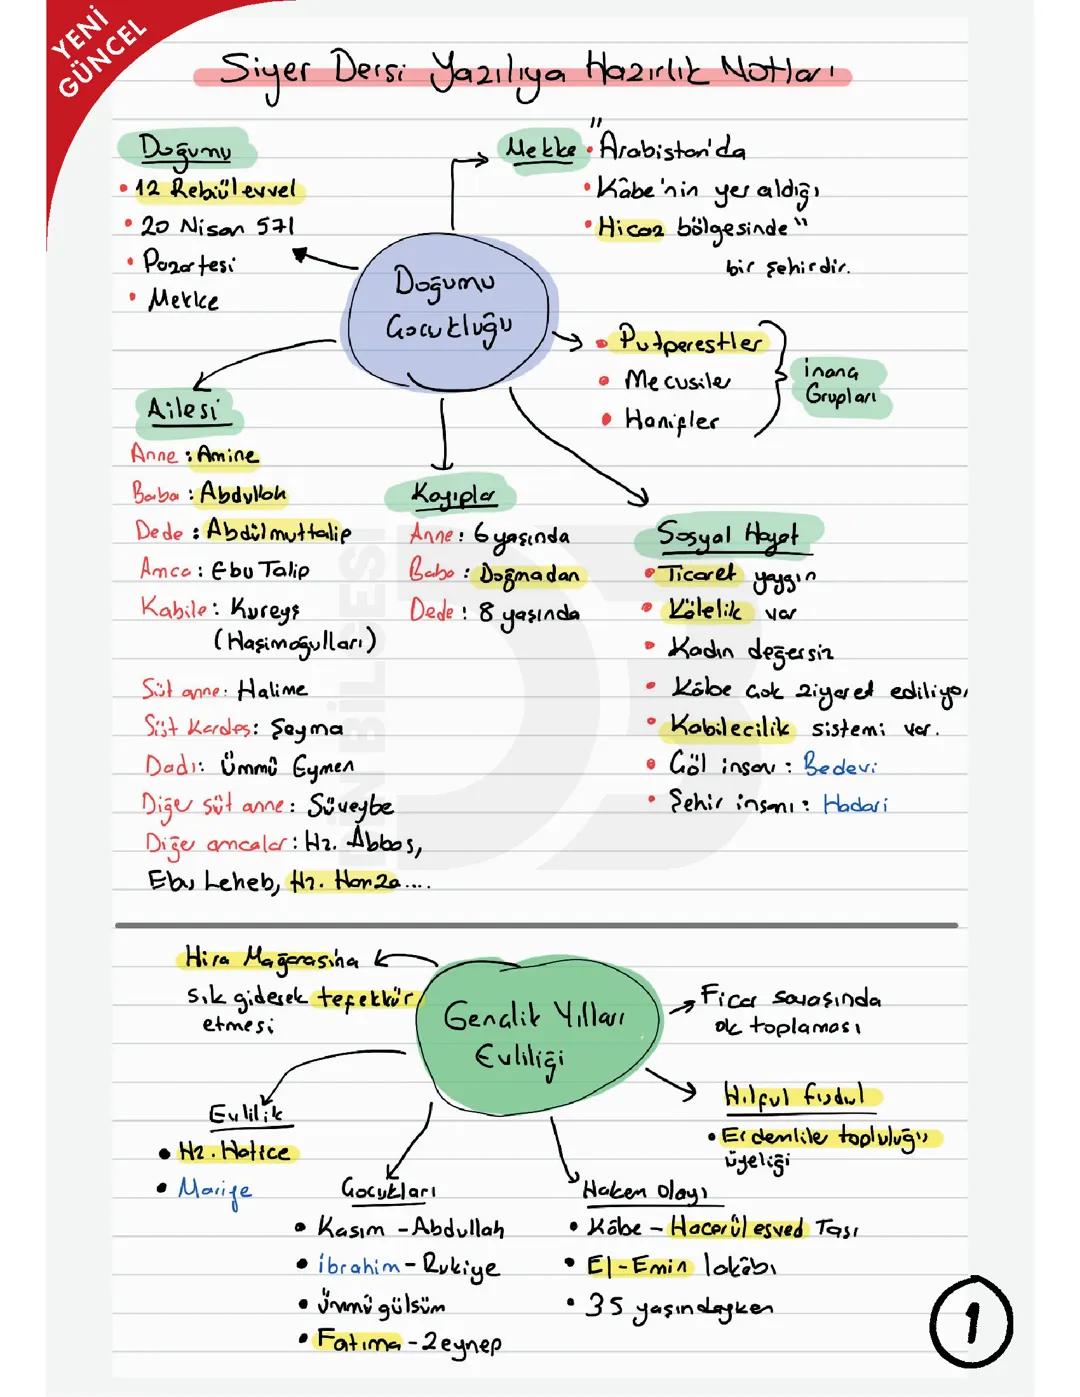 YENİ
GÜNCEL
Siyer Dersi Yazılıya Hazırlık Notları
Doğumu
• 12 Rebiülevvel
• 20 Nisan 571
• Pazartesi
• Mekke
Mekke • "Arabistan'da
• Kâbe'nin yer aldığı
• Hicaz bölgesinde"
bir şehirdir.
Doğumu
Çocukluğu
• Putperestler
• Mecusiler
• Hanifler
inanç
Grupları
Ailesi
Anne : Amine
Baba : Abdullah
Dede : Abdülmuttalip
Amca : Ebu Talip
Kabile : Kureyş
(Haşimoğulları)
Süt anne: Halime
Süt Kardeş: Şeyma
Dadı: Ümmü Eymen
Diğer süt anne: Süveybe
Diğer amcalar: Hz. Abbas,
Ebu Leheb, Hz. Hamza....
Kayıplar
Anne : 6 yaşında
Baba : Doğmadan
Dede : 8 yaşında
Sosyal Hayat
• Ticaret yaygın
• Kölelik var
• Kadın değersiz
• Kâbe çok ziyaret ediliyor
• Kabilecilik sistemi var.
• Çöl insanı : Bedevi
• Şehir insanı : Hadari
DİN BİLGESİ
DB
Hira Mağarasına
sık giderek tefekkür
etmesi
Gençlik Yılları
Evliliği
Ficar savaşında
ok toplaması
Hilful fudul
• Erdemliler topluluğu
üyeliği
Evlilik
• Hz. Hatice
• Mariye
Çocukları
• Kasım - Abdullah
• İbrahim - Rukiye
• Ümmü gülsüm
• Fatıma - Zeynep
Hakem Olayı
• Kâbe - Hacerül esved Taşı
• El-Emin lakâbı
• 35 yaşındayken
1